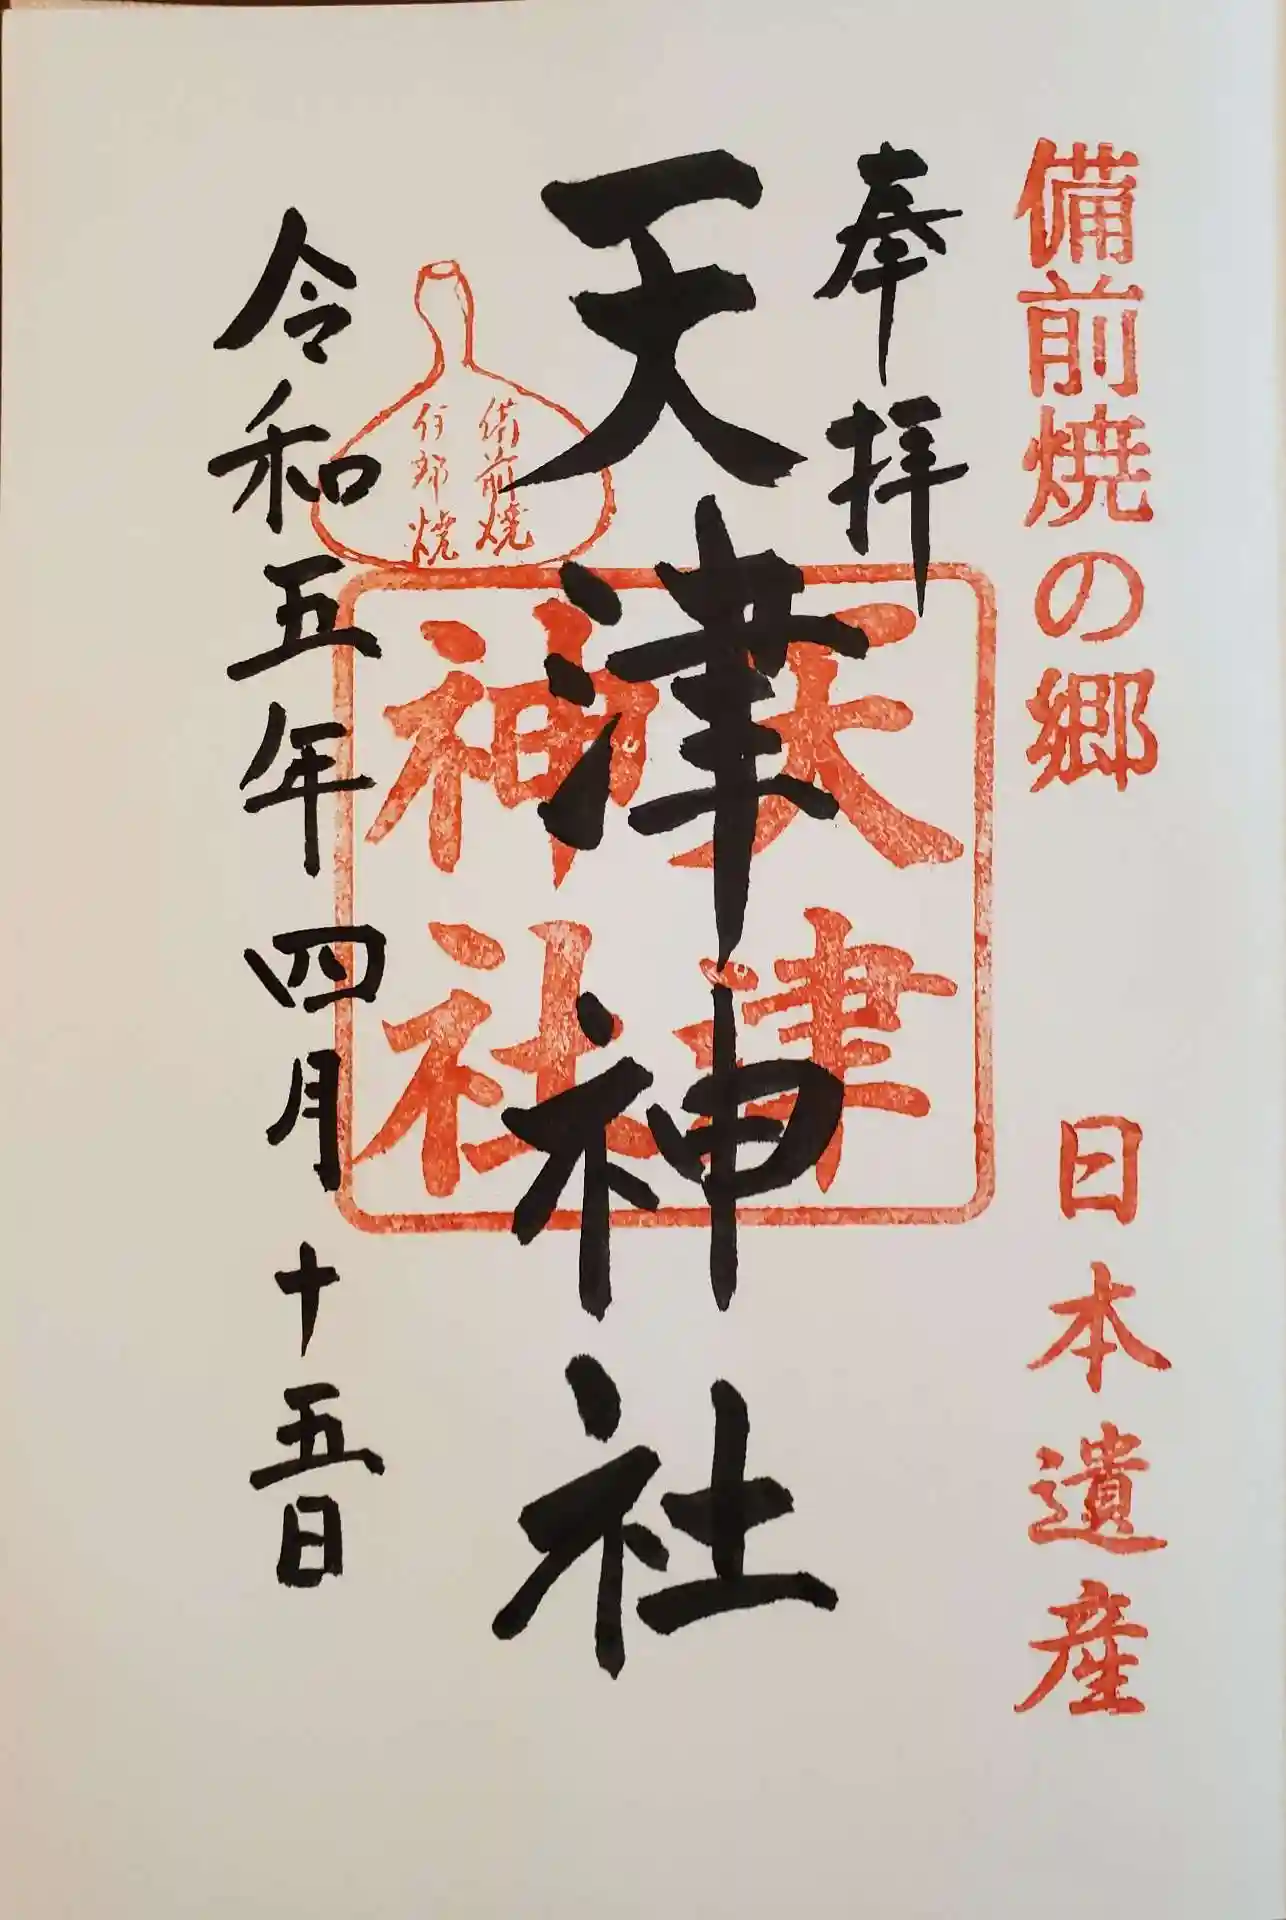 備前焼の郷　日本遺産
奉拝
天津神社
天津
神社
備前焼
伊部焼
令和五年四月十五日